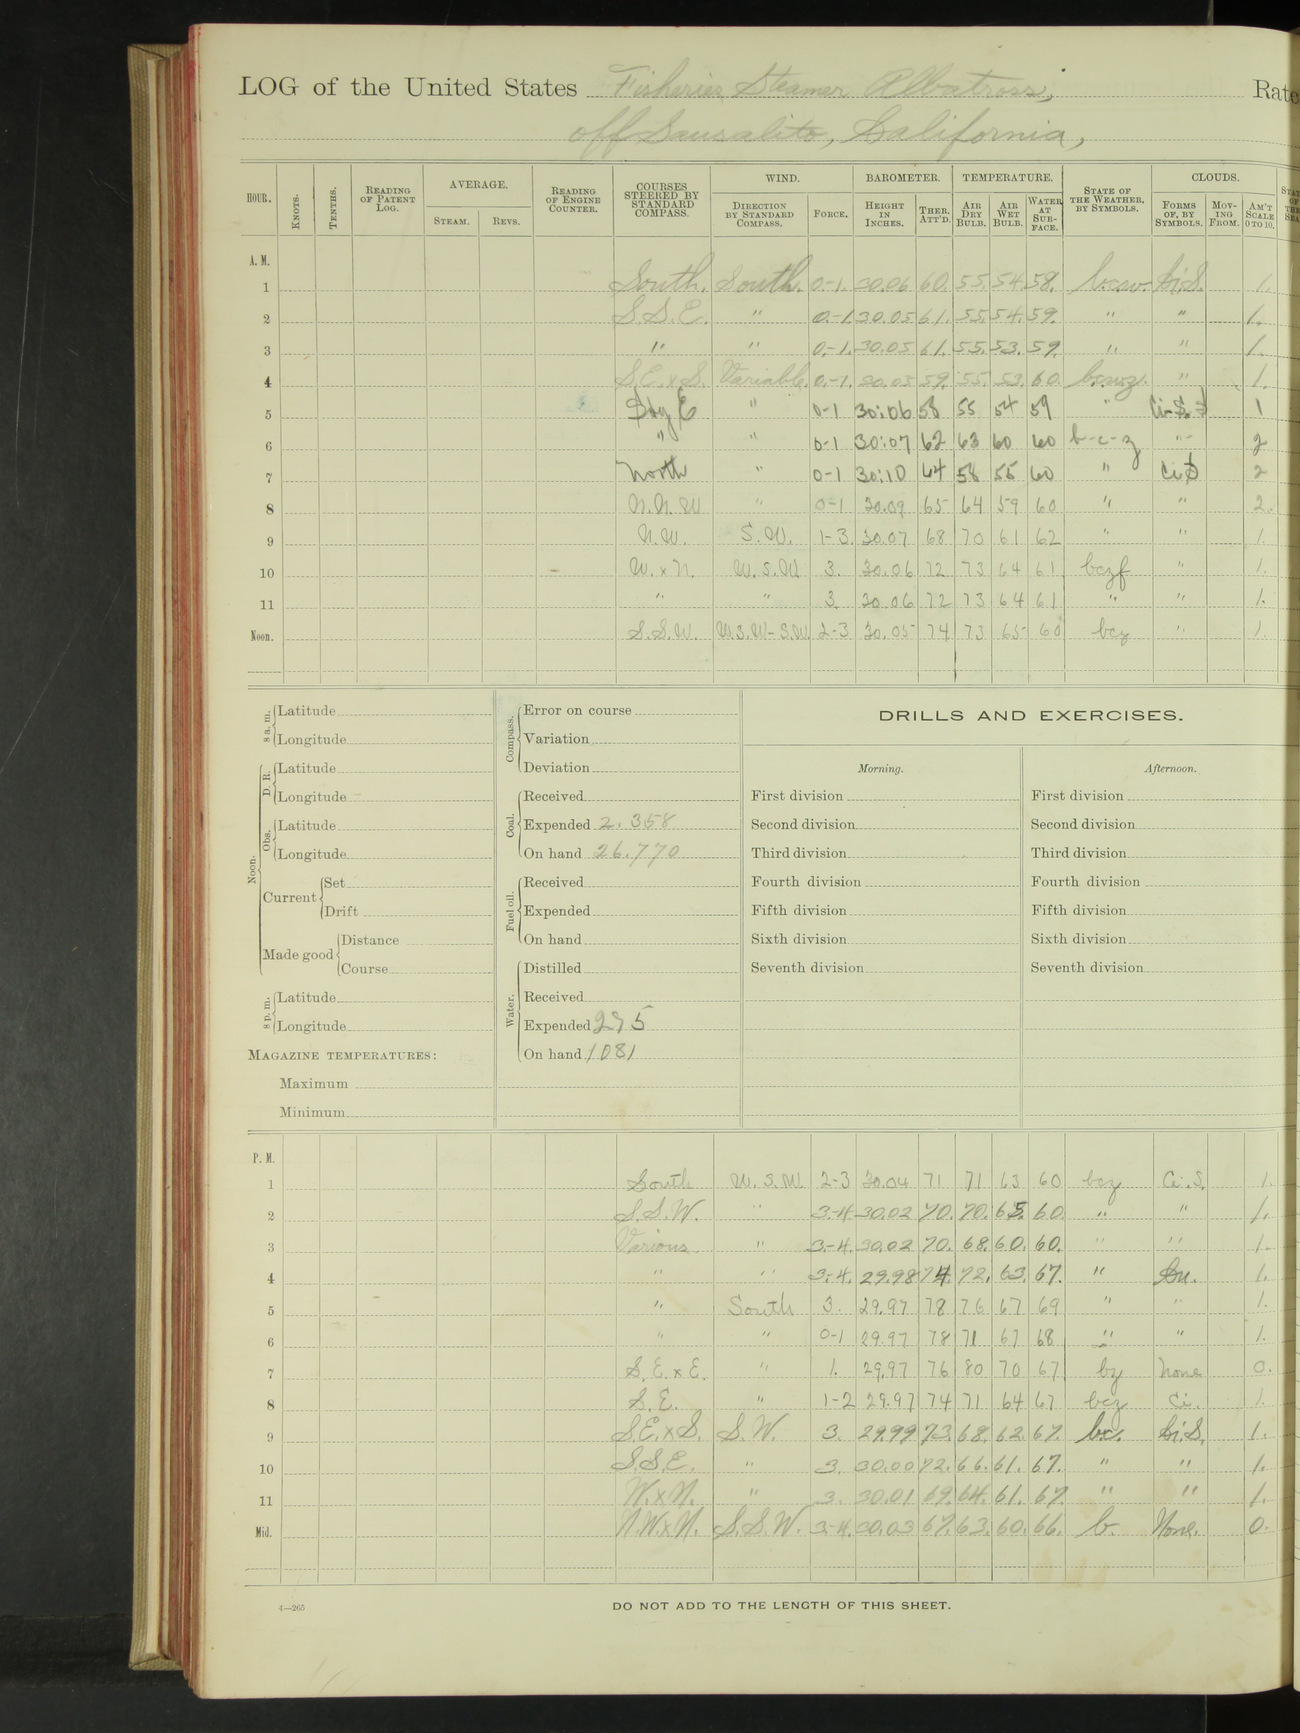 LOG of the United States Fisheries Steamer Albatross, Rate
off Sausalito, California,
HOUR. KNOTS. TENTHS. READING OF PATENT LOG. AVERAGE. STEAM. REVS. READING OF ENGINE COUNTER. COURSES STEERED BY STANDARD COMPASS. WIND. DIRECTION BY STANDARD COMPASS. FORCE. BAROMETER. HEIGHT IN INCHES. THER. ATT'D. TEMPERATURE. AIR DRY BULB. AIR WET BULB. WATER AT SUR-FACE. STATE OF THE WEATHER, BY SYMBOLS. CLOUDS. FORMS OF, BY SYMBOLS. MOV-ING FROM. AM'T SCALE 0 TO 10.
A. M.
1 South. South. 0-1. 30.06 60. 55. 54. 58. Ci.S. 1.
2 S.S.E. " 0-1. 30.05 61. 55. 54. 59. " " 1.
3 " " 0-1. 30.05 61. 55. 53. 59. " " 1.
4 S.E.xS. Variable. 0-1. 30.05 59. 55. 53. 60. " 1.
5 " 0-1 30:06 58 55 54 59 " 1
6 " " 0-1 30:07 62 63 60 60 b-c-z " 2
7 North " 0-1 30:10 64 58 55 60 " Ci S 2
8 N.N.W " 0-1 30.09 65 64 59 60 " " 2.
9 N.W. S.W. 1-3. 30.07 68 70 61 62 " " 1.
10 W.xN. W.S.W 3. 30.06 72 73 64 61 bczf " 1.
11 " " 3. 30.06 72 73 64 61 " " 1.
Noon. S.S.W. W.S.W-S.W. 2-3 30.05 74 73 65 60 bcz " 1.
8 a. m. Latitude
Longitude
Noon. D. R. Latitude
Longitude
Obs. Latitude
Longitude
Current Set
Drift
Made good Distance
Course
8 p. m. Latitude
Longitude
MAGAZINE TEMPERATURES:
Maximum
Minimum
Compass. Error on course
Variation
Deviation
Coal. Received
Expended 2.358
On hand 26.770
Fuel oil. Received
Expended
On hand
Water. Distilled
Received
Expended 275
On hand 1081
DRILLS AND EXERCISES.
Morning.
First division
Second division
Third division
Fourth division
Fifth division
Sixth division
Seventh division
Afternoon.
First division
Second division
Third division
Fourth division
Fifth division
Sixth division
Seventh division
P. M.
1 South W.S.W. 2-3 30.04 71 71 63 60 bcz Ci.S. 1.
2 S.S.W. " 3-4 30.02 70. 70. 63. 60. " " 1.
3 Various " 3-4. 30.02 70. 68. 60. 60. " " 1.
4 " " 3-4. 29.98 74. 72. 63. 67. " Cu. 1.
5 " South 3. 29.97 78 76 67 69 " " 1.
6 " " 0-1 29.97 78 71 67 68 " " 1.
7 S.E.xE. " 1. 29.97 76 80 70 67 bz None 0.
8 S.E. " 1-2 29.97 74 71 64 67 bcz Ci. 1.
9 S.E.xS. S.W. 3. 29.99 73. 68. 62. 67. bc. Ci.S. 1.
10 S.S.E. " 3. 30.00 72. 66. 61. 67. " " 1.
11 W.xN. " 3. 30.01 69. 64. 61. 67. " " 1.
Mid. N.W.xN. S.S.W. 3-4. 30.03 67. 63. 60. 66. b. None. 0.
4—265
DO NOT ADD TO THE LENGTH OF THIS SHEET.